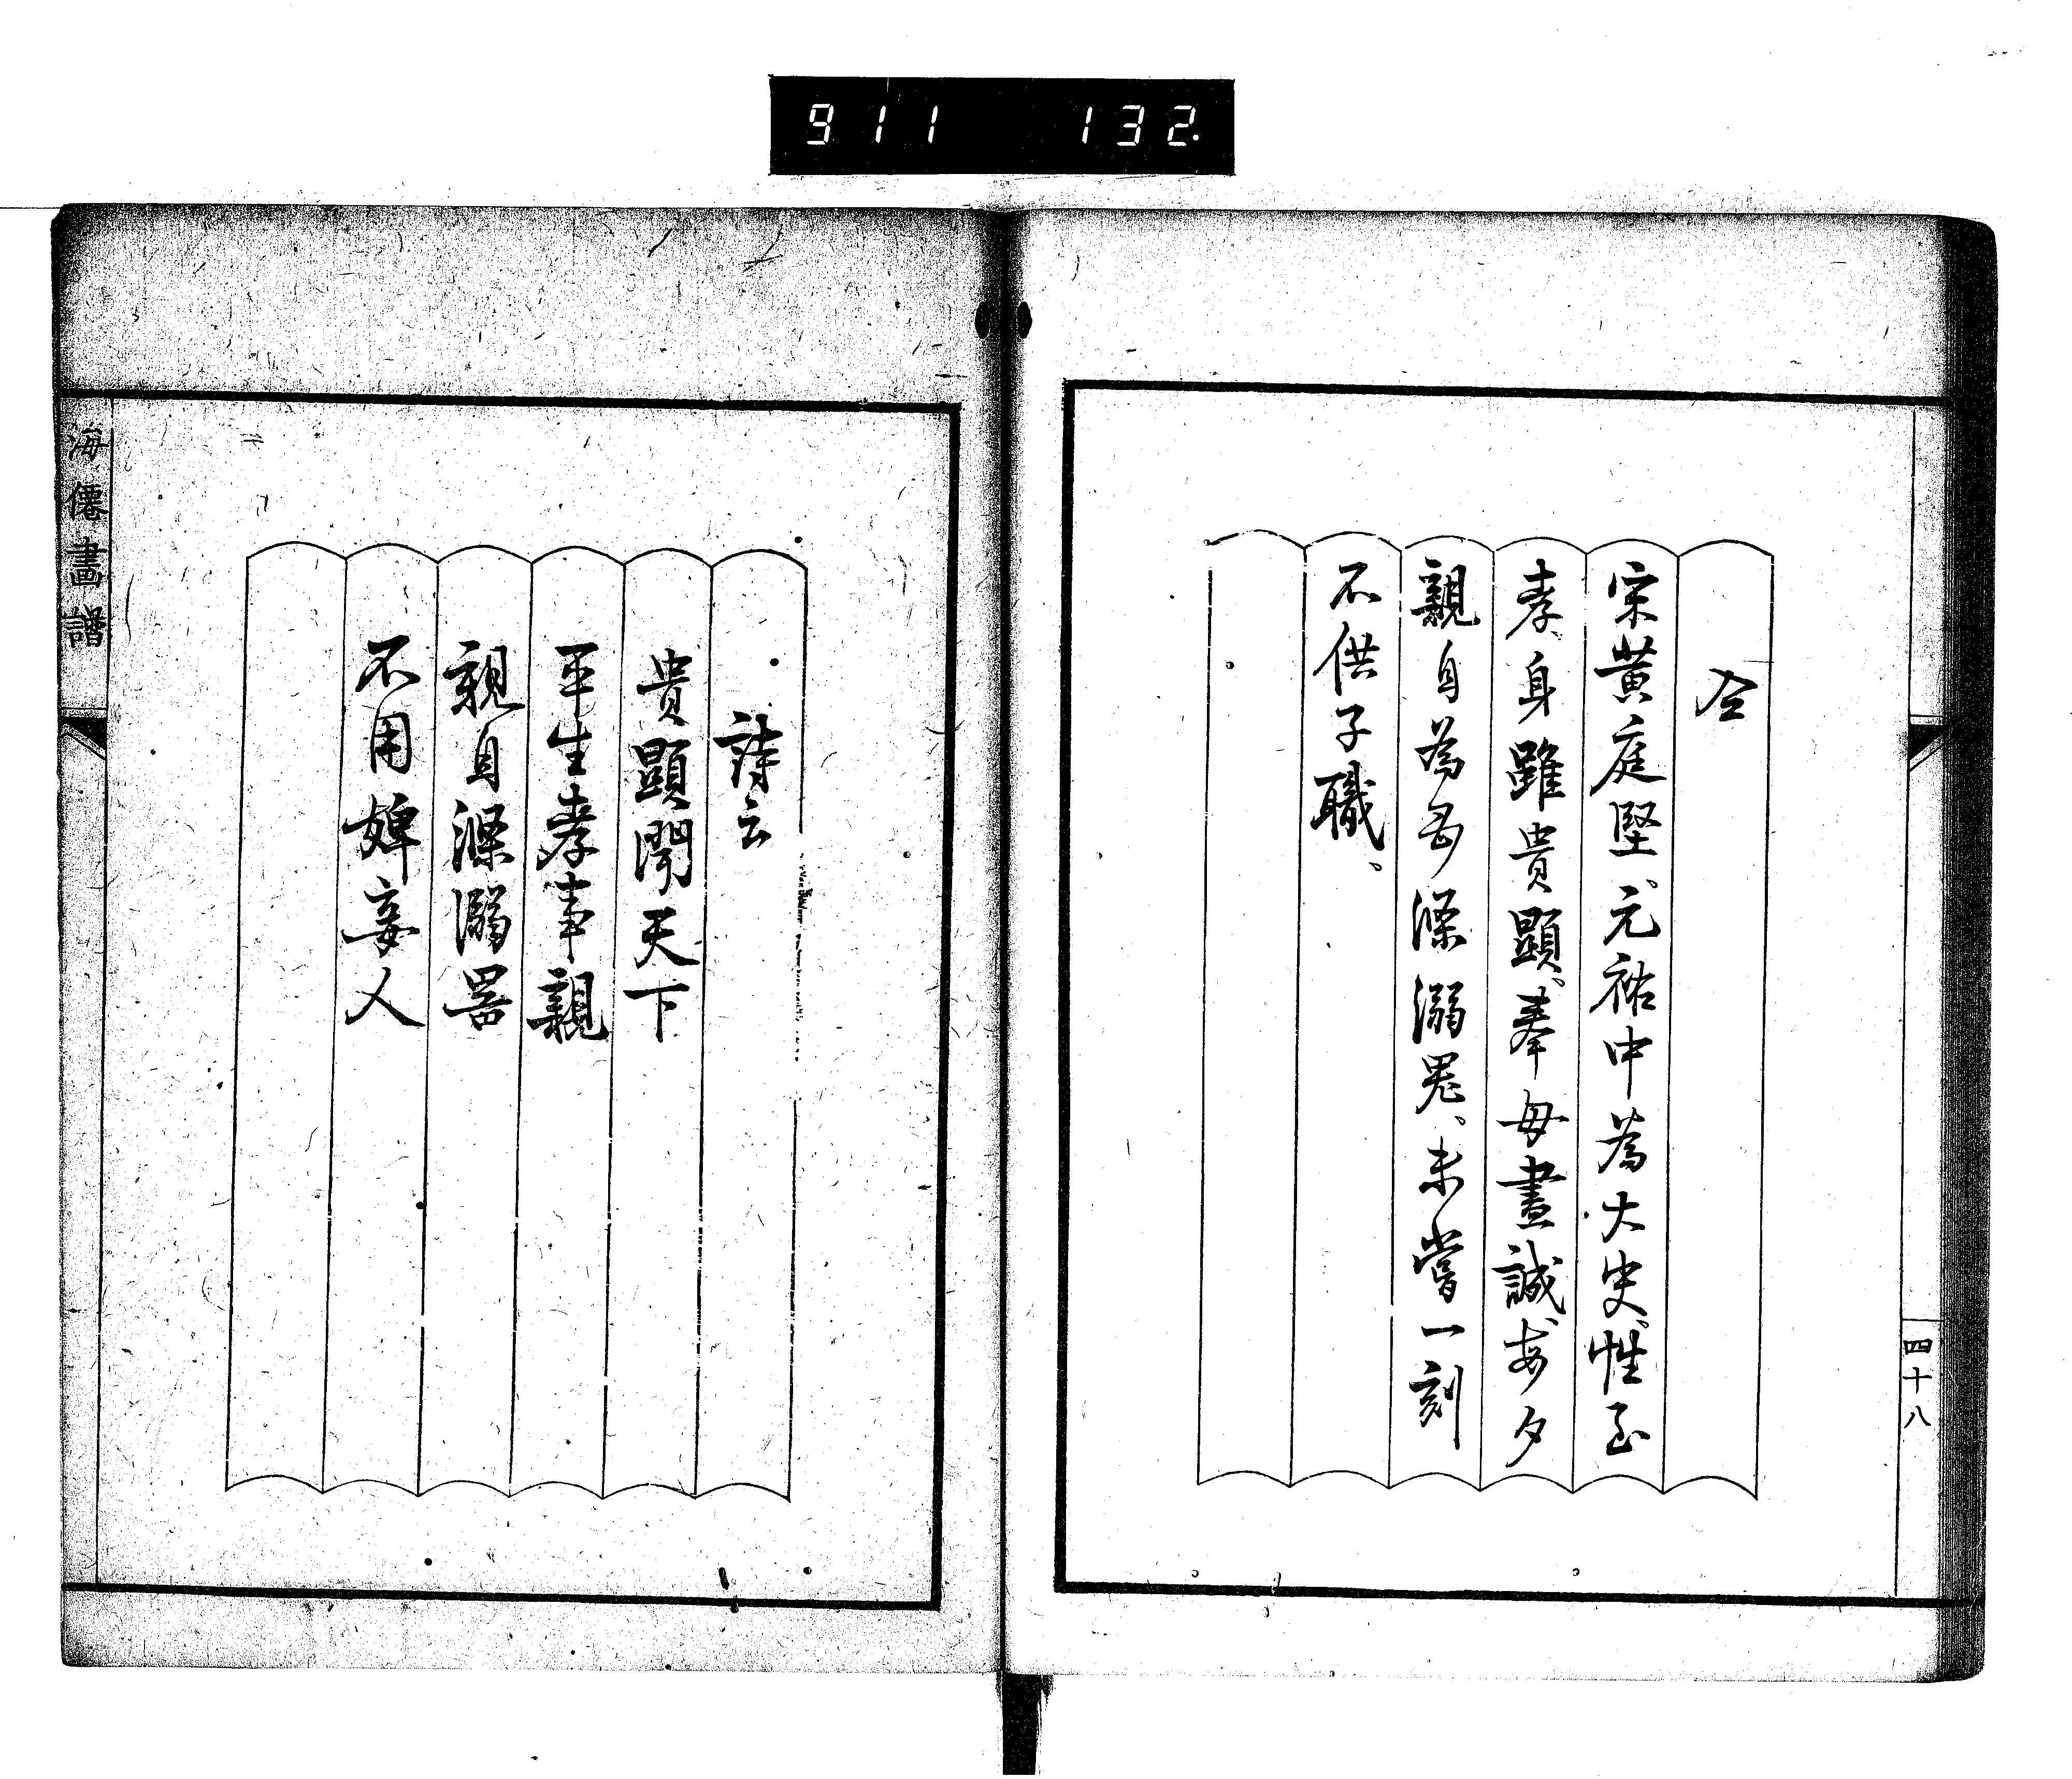 911 132.
四十八
仝
宋黄庭堅、元祐中為大史、性至
孝、身雖貴顯、奉母盡誠、每夕
親自為母滌溺器、未嘗一刻
不供子職、
詩云
貴顯聞天下
平生孝事親
親自滌溺器
不用婢妾人
海僊畫譜